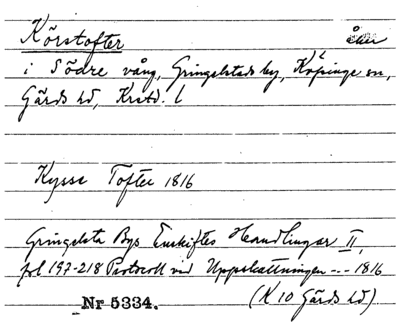 Körstofter åker
i Södre vång, Gringelstads by, Köpinge sn,
Gärds hd, Krstd. l
Kysse Tofter 1816
Gringelsta Bys Enskiftes Handlingar II,
fol 197-218 Protocoll vid Uppskattningen --- 1816
Nr 5334. (K 10 Gärds hd)